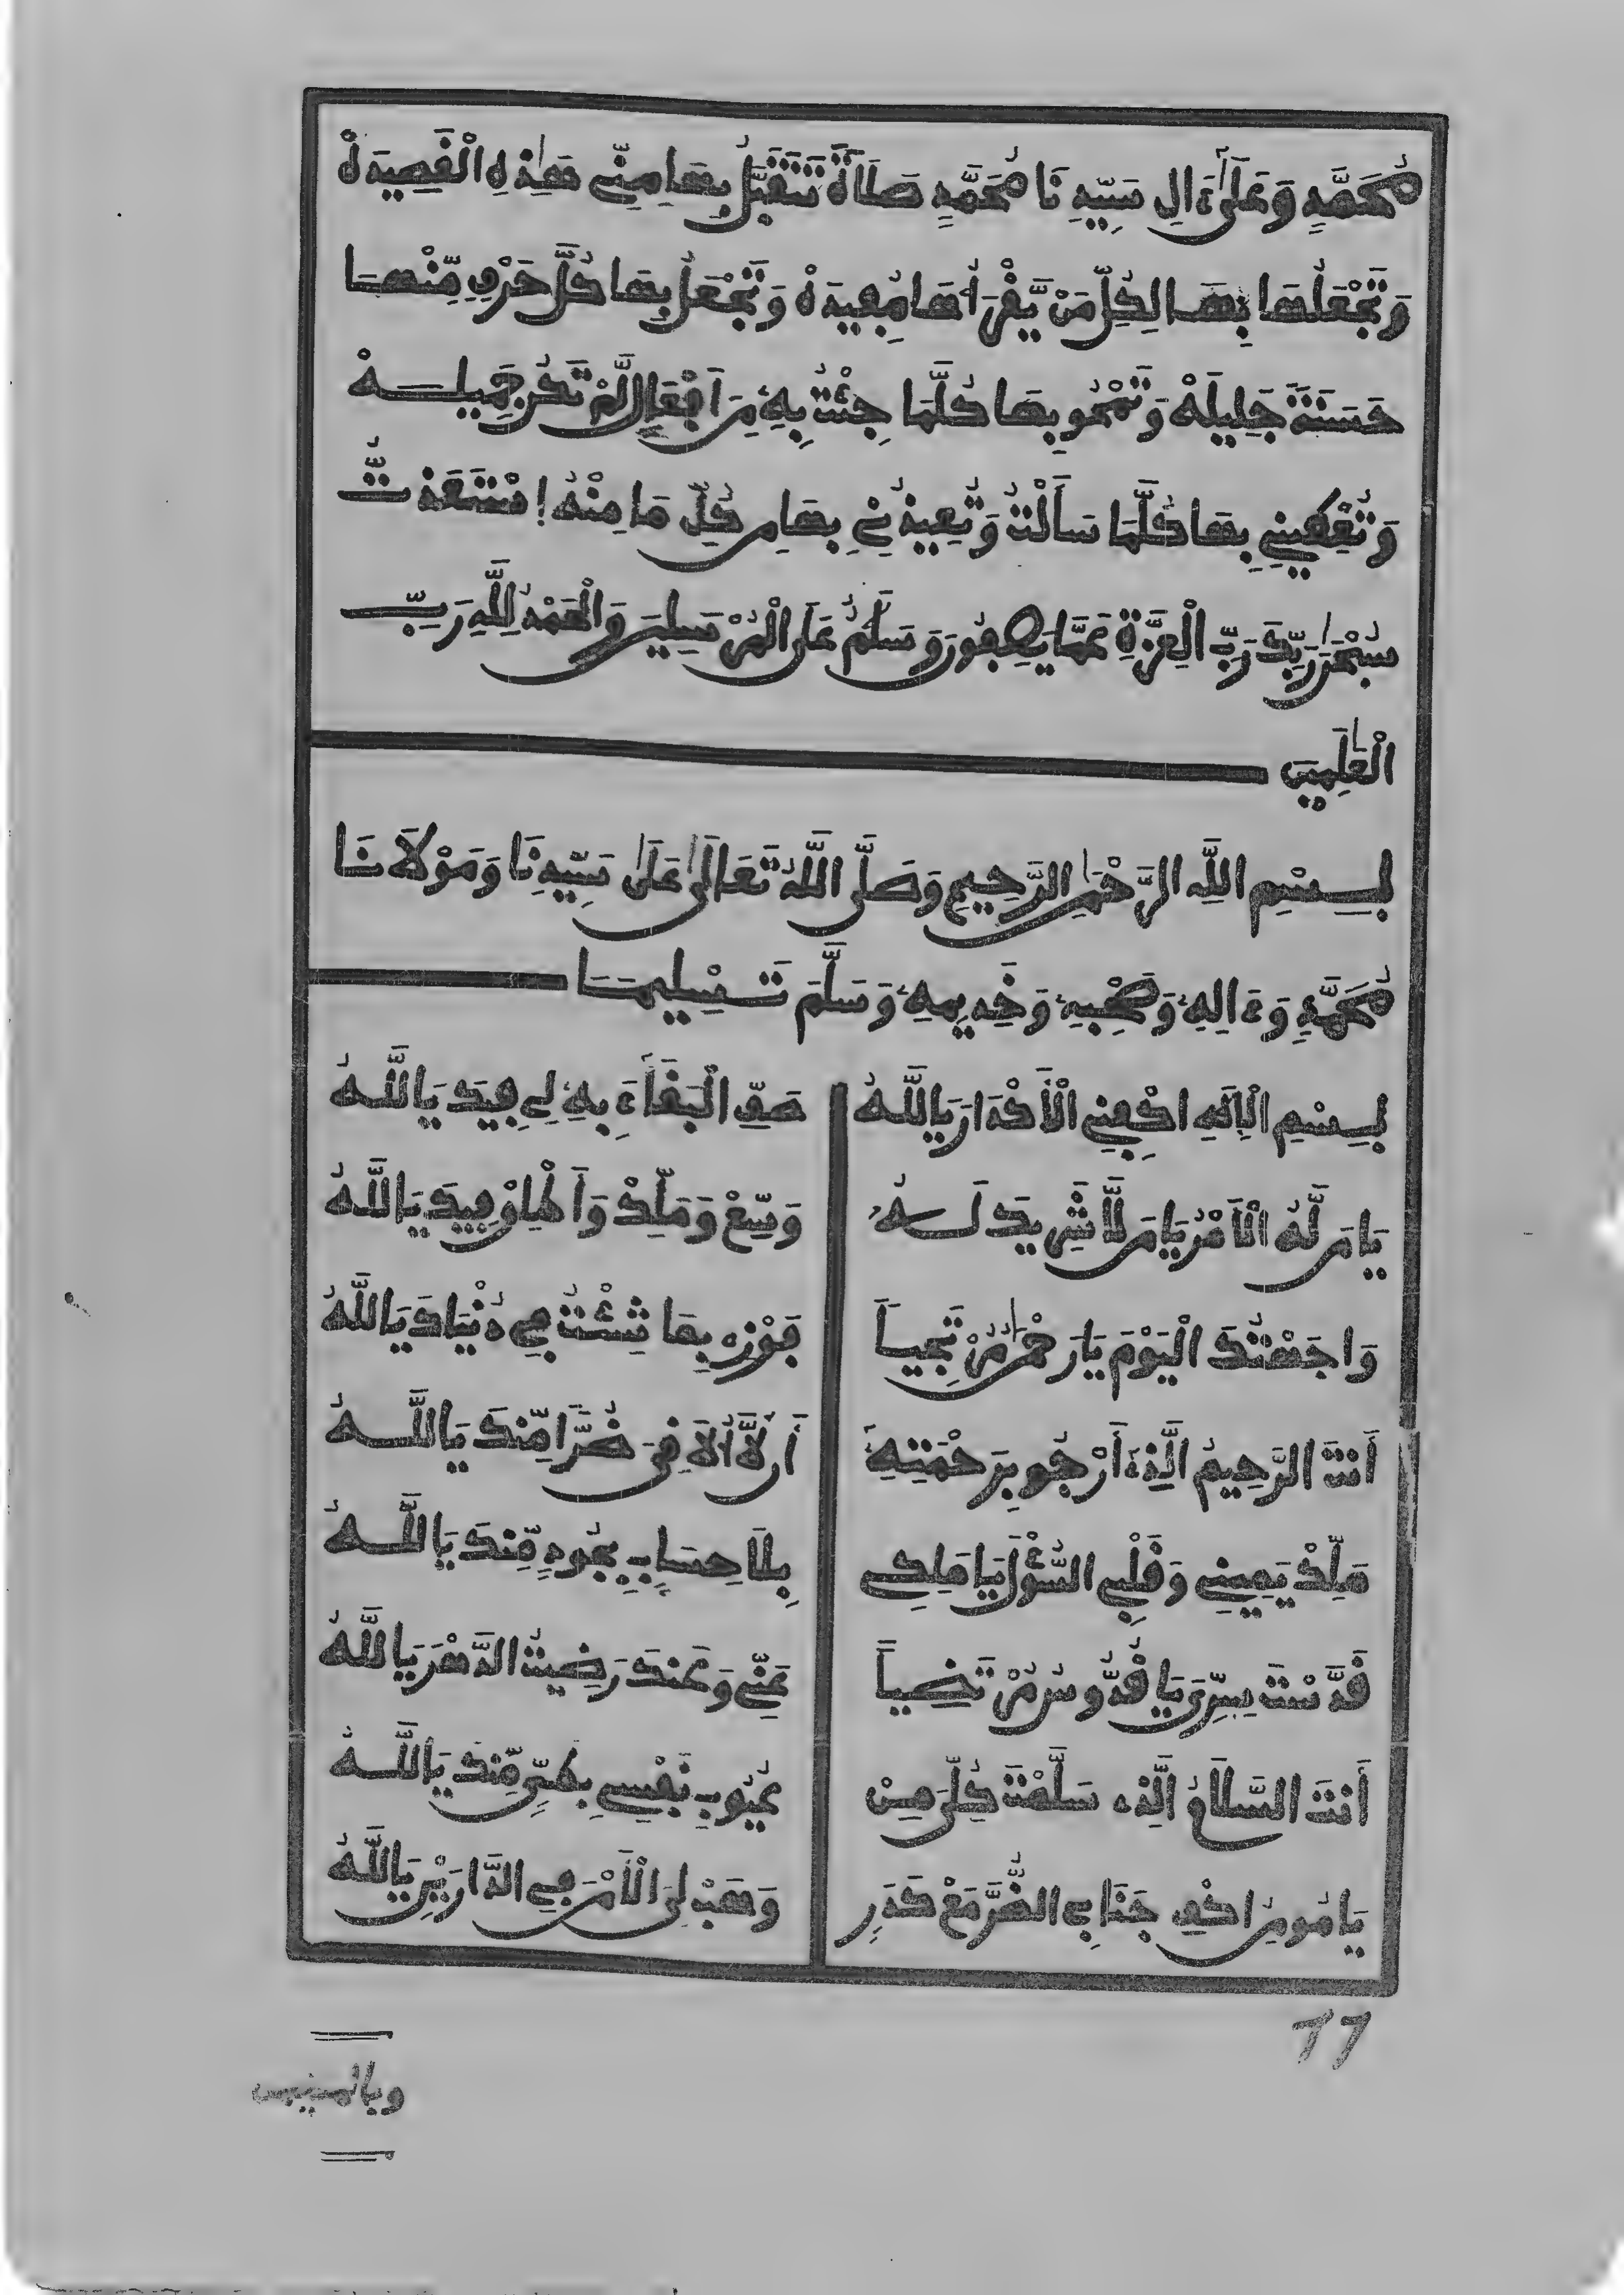 مُحَمَّدٍ وَعَلَىٰ ءَالِ سَيِّدِنَا مُحَمَّدٍ صَلَاةً تَتَقَبَّلُ بِهَا مِنِّي هَٰذِهِ الْقَصِيدَهْ
وَتَجْعَلُهَا بِهَا لِكُلِّ مَنْ يَّقْرَأُهَا مُفِيدَهْ وَتَجْعَلُ بِهَا كُلَّ حَرْفٍ مِّنْهَا
حَسَنَةً جَلِيلَهْ وَتَمْحُو بِهَا كُلَّمَا جِئْتُ بِهِ مِنَ افْعَالٍ لَّمْ تَكُن جَمِيلَهْ
وَتُعْطِينِي بِهَا كُلَّمَا سَأَلْتُ وَتُعِيذُنِي بِهَا مِن كُلِّ مَا مِنْهُ اسْتَعَذتُّ
سُبْحَٰنَ رَبِّكَ رَبِّ الْعِزَّةِ عَمَّا يَصِفُونَ وَسَلَٰمٌ عَلَى الْمُرْسَلِينَ وَالْحَمْدُ لِلَّهِ رَبِّ
الْعَٰلَمِينَ
بِسْمِ اللَّهِ الرَّحْمَٰنِ الرَّحِيمِ وَصَلَّى اللَّهُ تَعَالَىٰ عَلَىٰ سَيِّدِنَا وَمَوْلَانَا
مُحَمَّدٍ وَءَالِهِ وَصَحْبِهِ وَخَدِيمِهِ وَسَلَّمَ تَسْلِيمَا
بِسْمِ الْإِلَٰهِ اكْفِنِي الْأَكْدَارَ يَا اللَّهُ صَفِّ الْبَقَاءَ بِهِ لِي فِيكَ يَا اللَّهُ
يَا مَن لَّهُ الْأَمْرُ يَا مَن لَّا شَرِيكَ لَهُ وَسِّعْ وَمَلِّكْ وَأَهْلِ وُفِيكَ يَا اللَّهُ
وَاجَهْتُكَ الْيَوْمَ يَا رَحْمَٰنُ مُرْتَجِيًا فَوْزِي بِهَا شِئْتُ فِي دُنْيَاكَ يَا اللَّهُ
أَنتَ الرَّحِيمُ الَّذِي أَرْجُو بِرَحْمَتِهِ أَن لَّا أُلَاقِيَ ضُرًّا مِّنكَ يَا اللَّهُ
مَلِّكْ يَمِينِي وَقَلْبِي السُّؤْلَ يَا مَلِكِي بِلَا حِسَابٍ بِجُودٍ مِّنكَ يَا اللَّهُ
قَدَّسْتَ سِرِّيَ يَا قُدُّوسُ مُرْتَضِيًا عَنِّي وَعَنكَ رَضِيتُ الدَّهْرَ يَا اللَّهُ
أَنتَ السَّلَامُ الَّذِي سَلَّمْتَ كُلِّيَ مِنْ عُيُوبِ نَفْسِي بِطَيٍّ مِّنكَ يَا اللَّهُ
يَا مُومِنُ اكْفِ جَنَابِي الضُّرَّ مَعْ كَدَرِ وَهَبْ لِيَ الْأَمْنَ فِي الدَّارَيْنِ يَا اللَّهُ
17